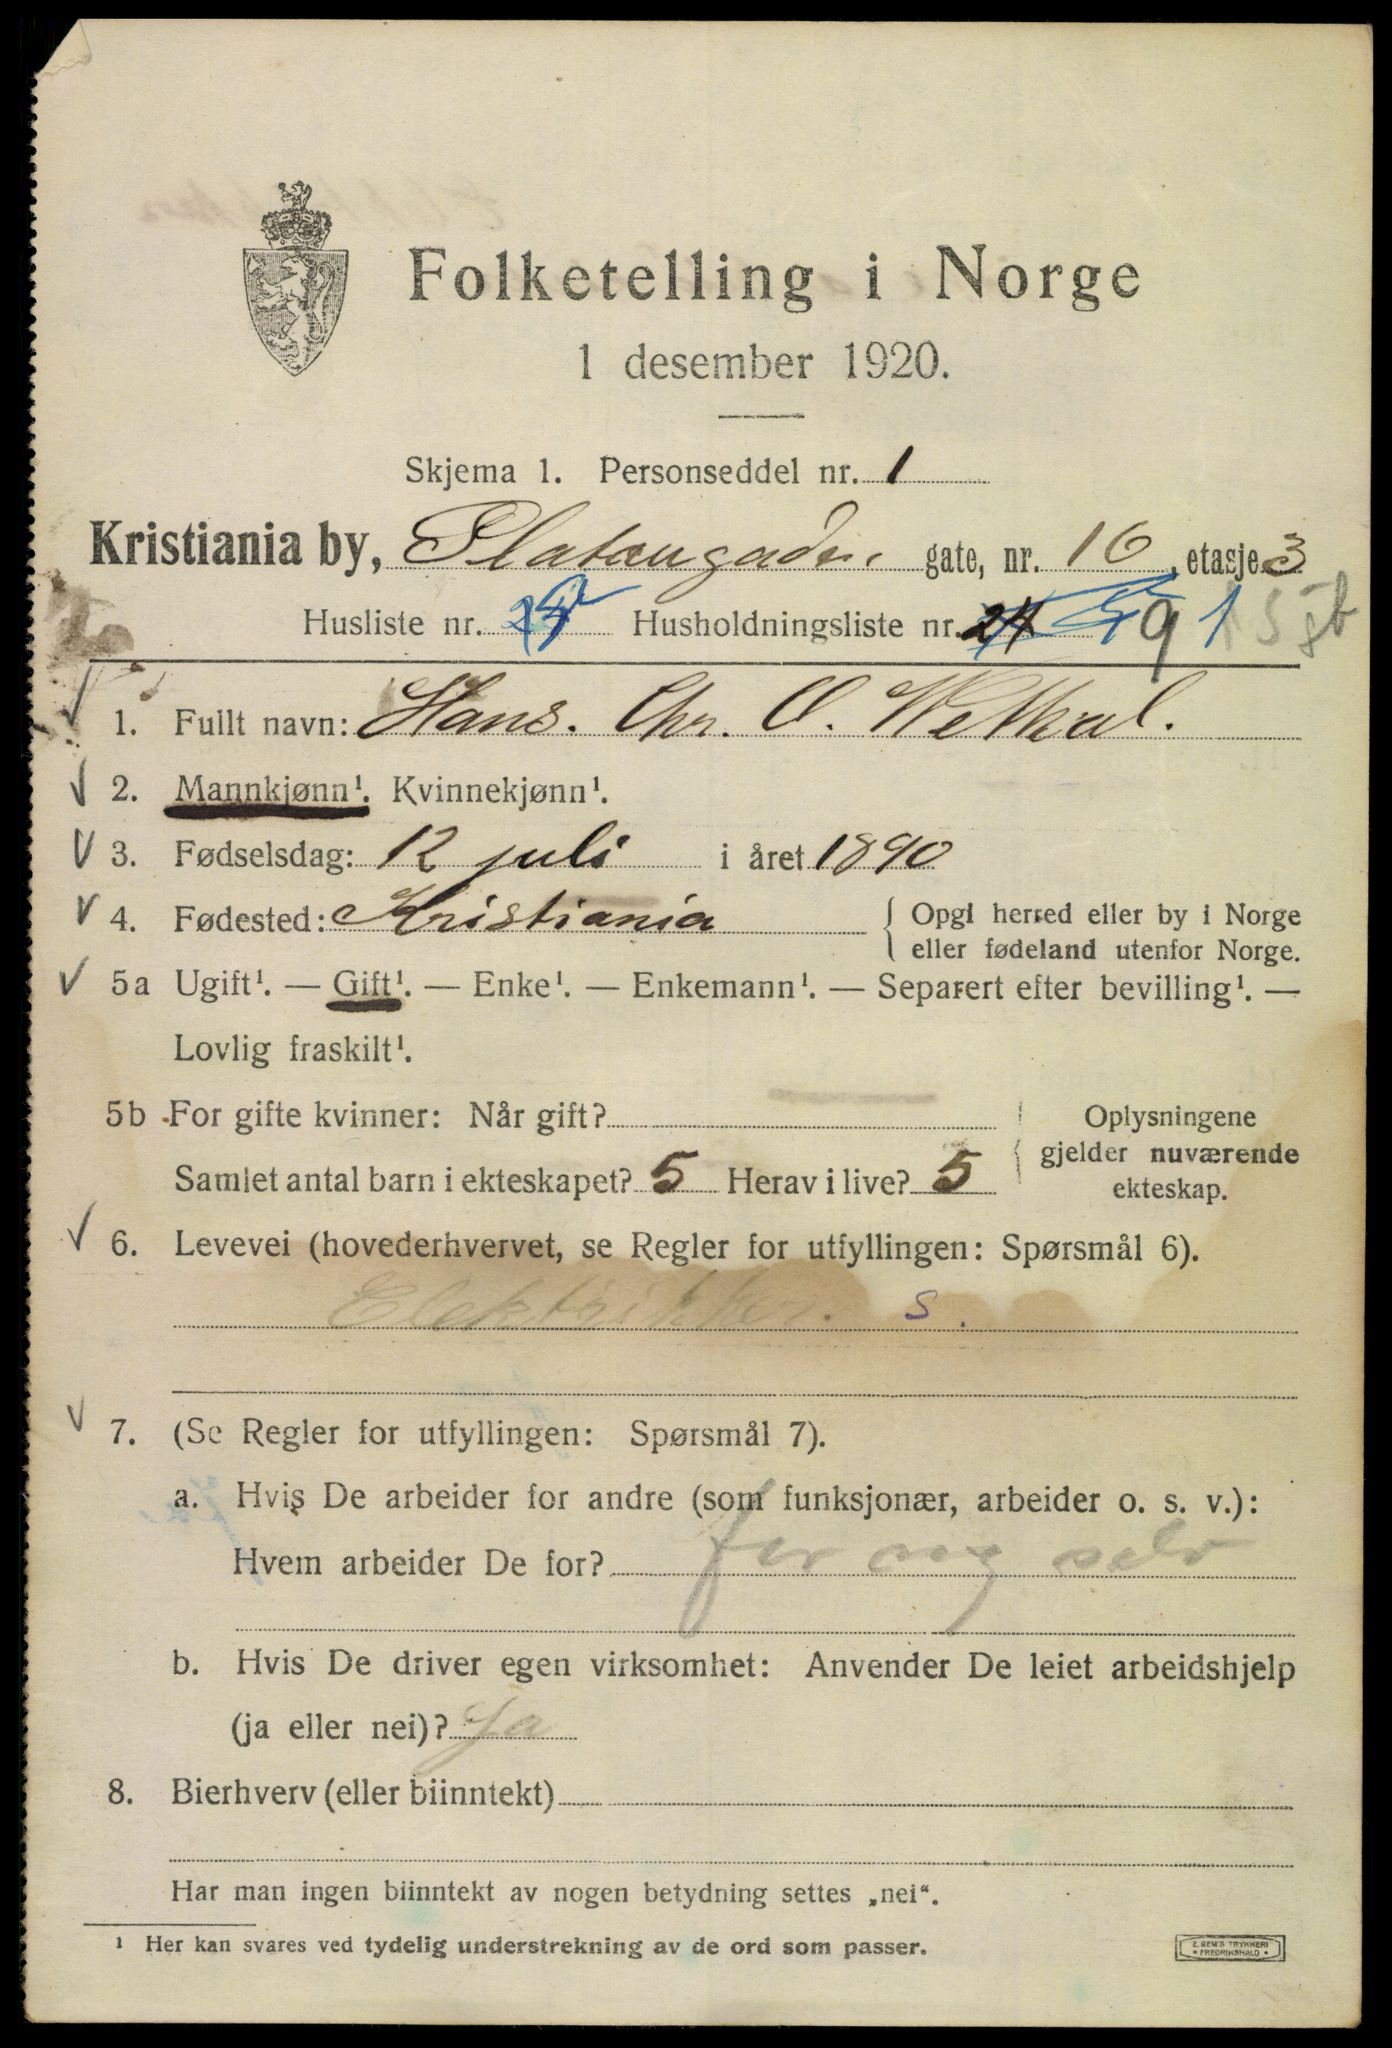 Folketelling i Norge
1 desember 1920.
Skjema 1. Personseddel nr. 1
Kristiania by, Platangaden gate, nr. 16, etasje 3
Husliste nr. Husholdningsliste nr. 9 1
1. Fullt navn: Hans. Chr. O. Wethal.
2. Mannkjønn¹. Kvinnekjønn¹.
3. Fødselsdag: 12 juli i året 1890
4. Fødested: Kristiania { Opgi herred eller by i Norge
eller fødeland utenfor Norge.
5a Ugift¹. — Gift¹. — Enke¹. — Enkemann¹. — Separert efter bevilling¹. —
Lovlig fraskilt¹.
5b For gifte kvinner: Når gift?
Samlet antal barn i ekteskapet? 5 Herav i live? 5
Oplysningene
gjelder nuværende
ekteskap.
6. Levevei (hovederhvervet, se Regler for utfyllingen: Spørsmål 6).
Elektrikker. S.
7. (Se Regler for utfyllingen: Spørsmål 7).
a. Hvis De arbeider for andre (som funksjonær, arbeider o. s. v.):
Hvem arbeider De for? for mig selv
b. Hvis De driver egen virksomhet: Anvender De leiet arbeidshjelp
(ja eller nei)? Ja
8. Bierhverv (eller biinntekt)
Har man ingen biinntekt av nogen betydning settes „nei“.
¹ Her kan svares ved tydelig understrekning av de ord som passer.
E. SEM'S TRYKKERI
• FREDRIKSHALD •